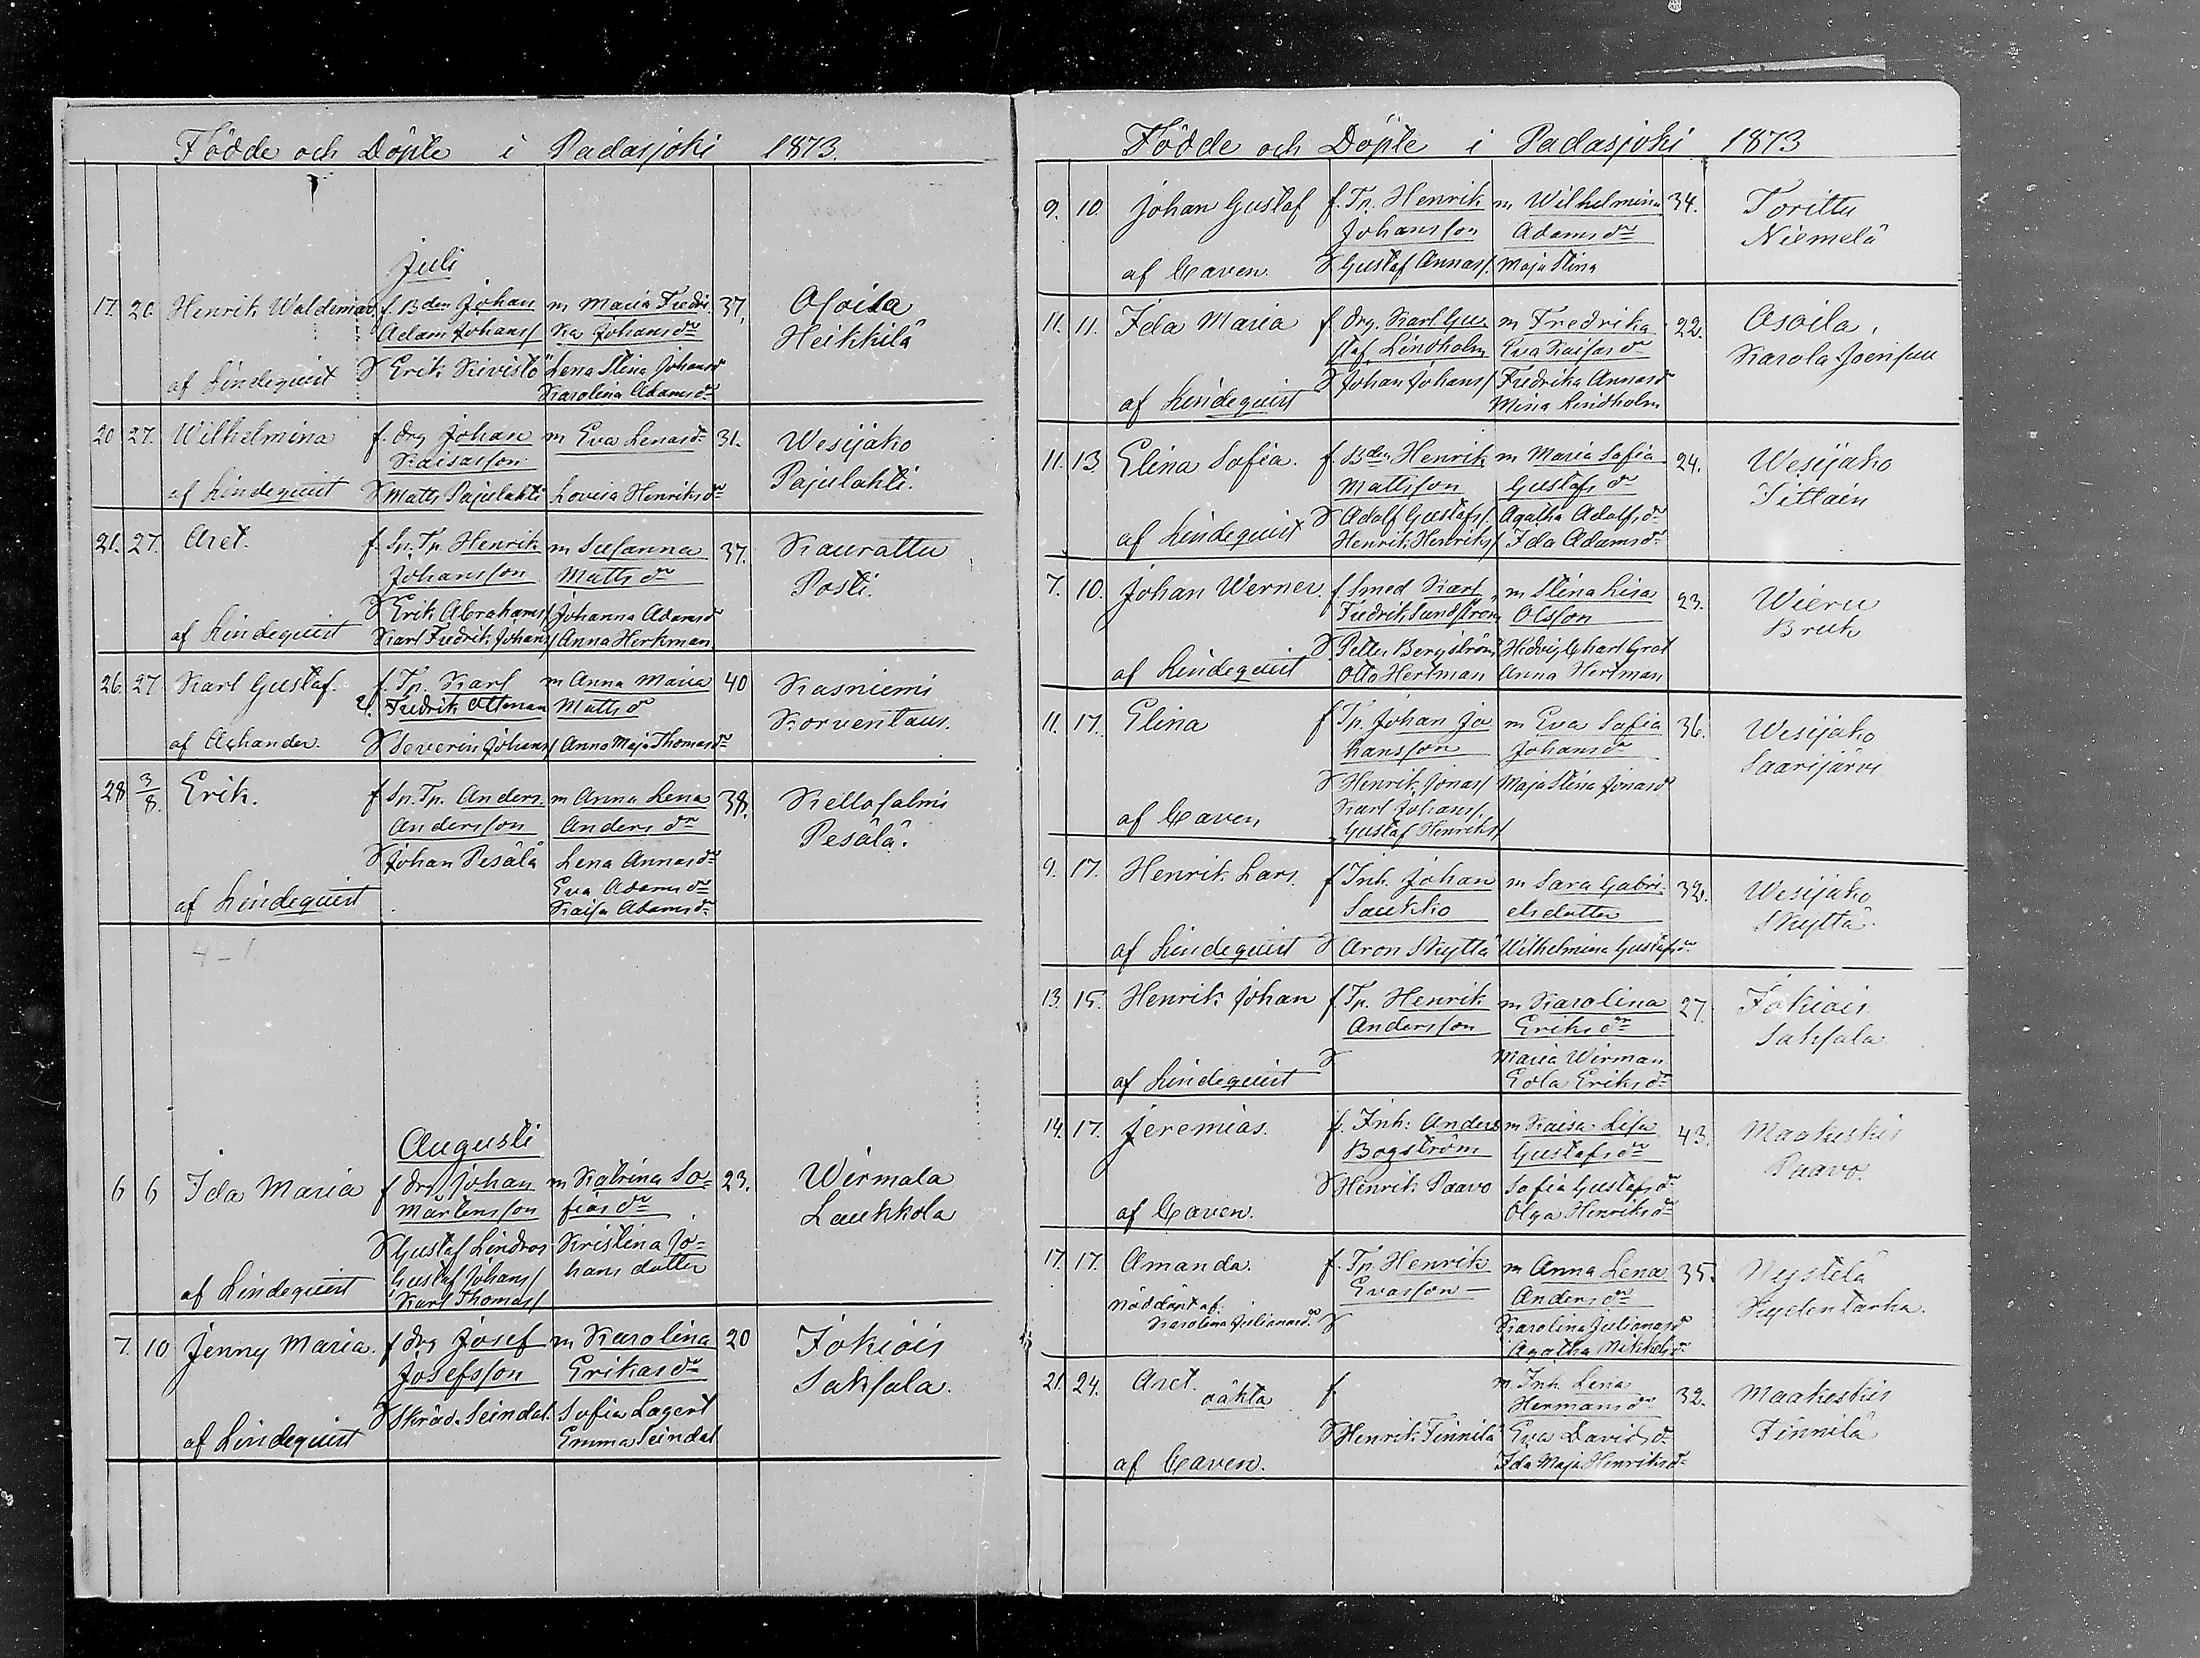 Födde och Döpte i Padasjoki 1873.
Juli
17. 20. Henrik Waldemar f. Bden Johan m Maria Fredri 37. Asoila
Adam Johanss ka Johansdr Heikkilä
af Lindequist S Erik Kivistö Lena Stina Johansd
Karolina Adamsdr
20 27. Wilhelmina f. drg Johan m Eva Lenasdr 31. Wesijako
Kaisasson Pajulahti.
af Lindequist S Matts Pajulahti Lovisa Henriksdr
21. 27. Aret. f Sp. Tp Henrik m Susanna 37. Kaurattu
Johansson Mattsdr Posti.
S Erik Abrahamss Johanna Adamsd
af Lindequist Karl Fredrik Johanss Anna Herkman
26. 27 Karl Gustaf. f. Tp. Karl m Anna Maria 40 Kasniemi
Fredrik Ottman Mattsd Korventaus.
af Achander. S Severin Johanss Anna Maja Thomasdr
28 3/8. Erik. f Sp. Tp. Anders m Anna Lena 38. Kellosalmi
Andersson Andersdr Pesälä.
S Johan Pesälä Lena Annasdr
Eva Adamsdr
af Lindequist Kaisa Adamsdr
Augusti
6 6 Ida Maria f drg Johan m Katrina So- 23. Wirmala
Martensson fiasdr Laukkola
S Gustaf Lindros Kristina Jo-
Gustaf Johanss hans dotter
af Lindequist Karl Thomass
7. 10 Jenny Maria. f drg Josef m Karolina 20 Jokiois
Josefsson Erikasdr Saksala.
S Skräd. Seindal. Sofia Lagert
af Lindequist Emma Seindal
Födde och Döpte i Padasjoki 1873
9. 10. Johan Gustaf f. Tp. Henrik m Wilhelmina 34. Torittu
Johansson Adamsdr Niemelä
af Caven. S Gustaf Annass. Maja Stina
11. 11. Ida Maria f drg. Karl Gu- m Fredrika 22. Asoila,
staf Lindholm Eva Kaisasdr Karola Joensuu
S Johan Johanss Fredrika Annasd
af Lindequist Mina Lindholm
11. 13 Elina Sofia. f. Bden Henrik m Maria Sofia 24. Wesijako
Mattsson Gustafsdr Tittain
S Adolf Gustafs. Agatha Adolfsdr
af Lindequist Henrik Henrikss Ida Adamsdr
7. 10. Johan Werner. f Smed Karl m Stina Lisa 23. Wieru
Fredrik Sundström Olsson Bruk
S Petter Bergström Hedvig
af Lindequist Otto Hertman Anna Hertman
11. 17. Elina f Tp. Johan Jo m Eva Sofia 36. Wesijako
hansson Johansdr Saarijärvi
S Henrik Jonass Maja Stina Jonasd
Karl Johanss.
af Caven, Gustaf Henrikss
9. 17. Henrik Lars. f Inh. Johan m Sara Gabri- 32. Wesijako
Saukko elsdotter Skyttä.
af Lindequist S Aron Skyttä Wilhelmina Gustafsdr
13. 15. Henrik Johan f Tp. Henrik m Karolina 27. Jokiois
Andersson Eriksdr Saksala
S Maria Wirman
af Lindequist Eriksdr
14. 17. Jeremias. f. Inh: Anders m Kaisa Lisa 43. Maakeskis
Bogström Gustafsdr Paavo.
S Henrik Paavo Sofia Gustafsdr
af Caven. Olga Henriksdr
17. 17. Amanda. f. Tp Henrik m Anna Lena 35. Nystelä
Evasson Andersdr
Nöddöpt af
Karolina Julianasdr. S Karolina Julianasd
Agatha Mikkelsdr
21. 24. Aret. oäkta f m Inh Lena 32. Maakeskis
Hermansdr Finnilä
S Henrik Finnilä Eva Davidsdr
af Caven. Ida Maja Henriksdr